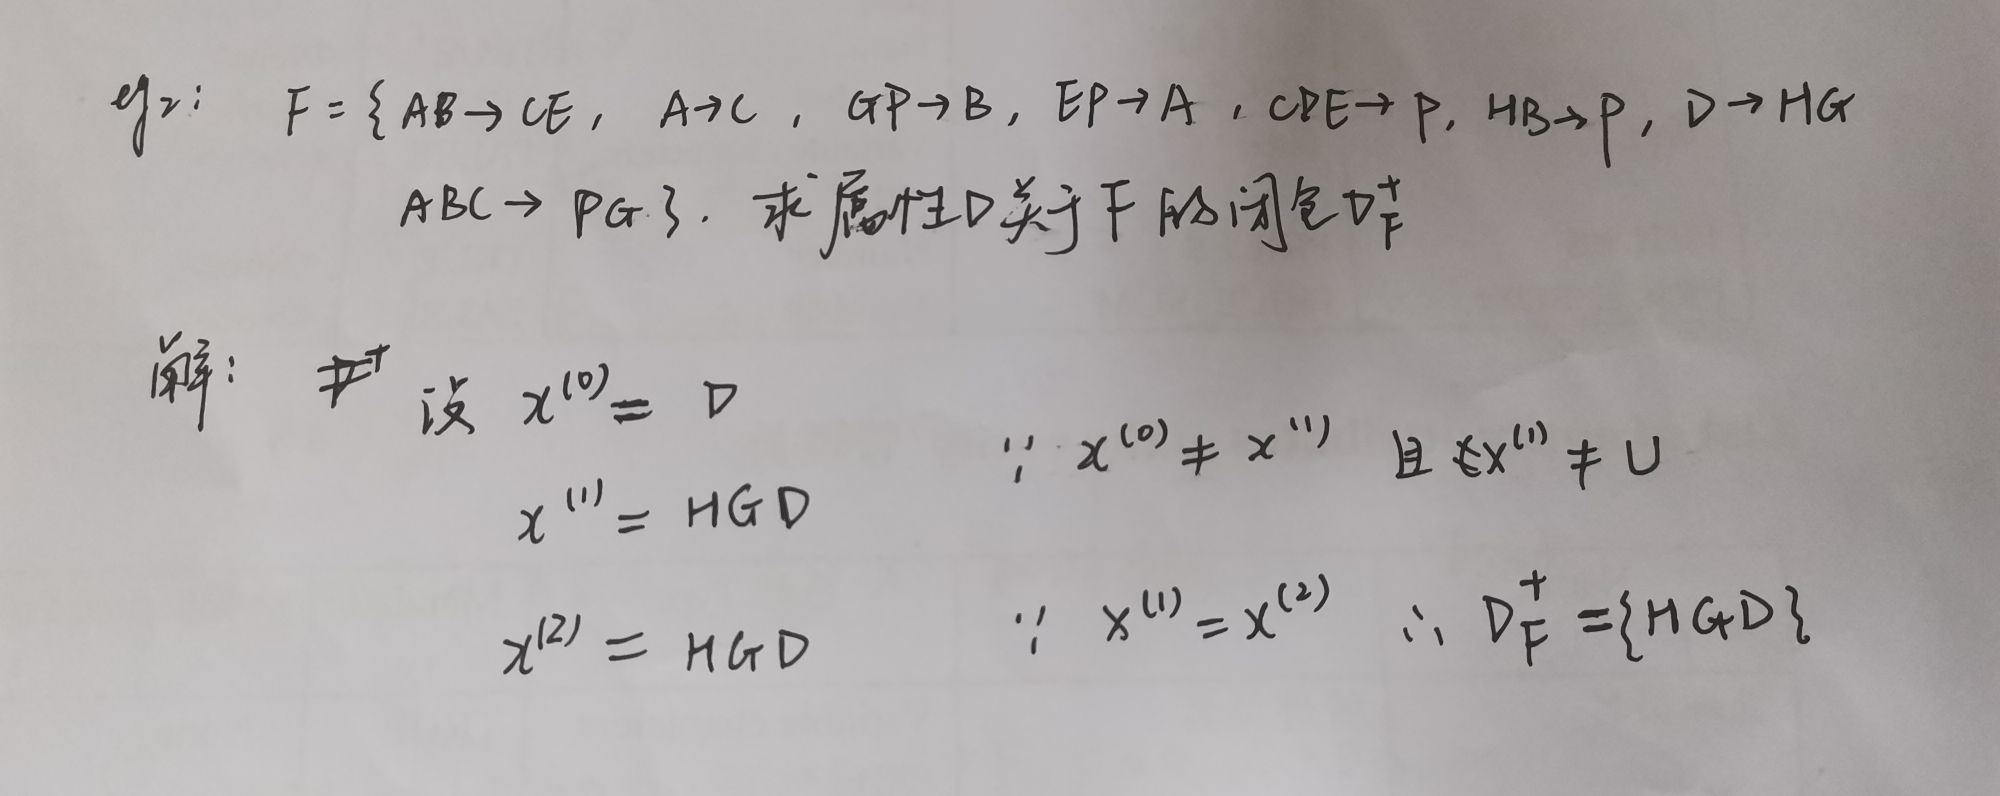 eg2: F={AB→CE, A→C, GP→B, EP→A, CDE→P, HB→P, D→HG
ABC→PG}. 求属性D关于F的闭包D_F^+
解: 设 x^(0) = D
∵ x^(0) ≠ x^(1) 且 x^(1) ≠ U
x^(1) = HGD
x^(2) = HGD
∵ x^(1) = x^(2) ∴ D_F^+ ={HGD}